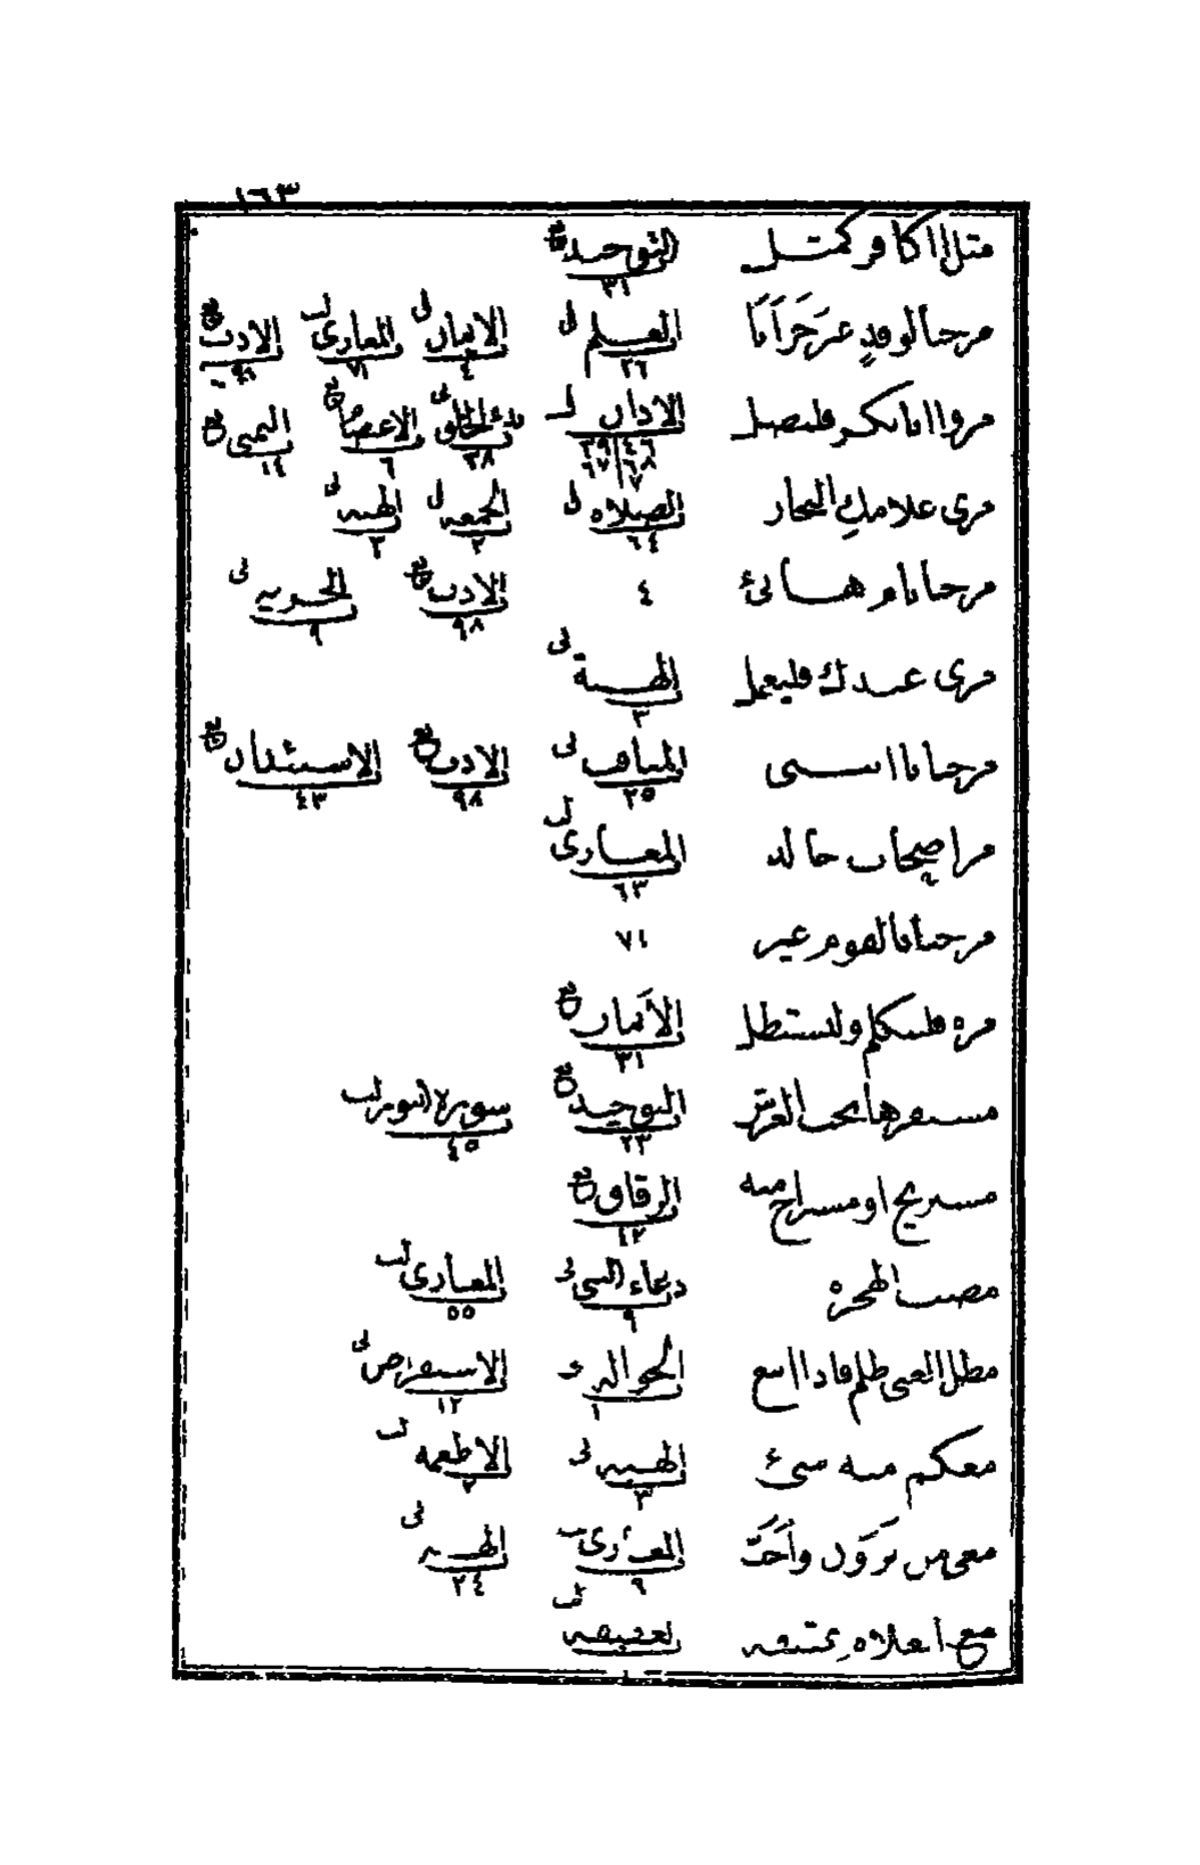 ١٦٣
مثل الكافر كمثل التوحيد ٣١
مرحبا لوفد غير خزايا العلم ٢٦ الايمان ٤ المغازى ٧١ الادب ٩٨
مروا ابابكر فليصل الاذان ٤٦ ٣٩ ٦٨ ٦٧ ٧ بدء الخلق ٣٨ الاعتصام ٦ التمنى ١٤
مرى غلامك النجار الصلاه ٦٤ الجمعه ٢ الهبه ٣
مرحبا بام هانئ ٤ الادب ٩٨ الجزيه ٩
مرى عبدك فليعمل الهبة ٣
مرحبا بابنتى المناقب ٢٥ الادب ٩٨ الاستئذان ٤٣
مر اصحاب خالد المغازى ٦٣
مرحبا بالقوم غير ٧١
مره فليتكلم وليستظل الأيمان ٣١
مستقرها تحت العرش التوحيد ٢٣ سورة ٤٥
مستريح او مستراح منه الرقاق ٤٢
دعاء النبى ٩ المغازى ٥٥
مطل الغنى ظلم فاذا اتبع الحواله ١ الاستقراض ١٢
معكم منه شئ الهبه ٣ الاطعمه ٢
معى من ترون وأحب المغازى ٩ الهبه ٢٤
مع الغلام عقيقه العقيقه